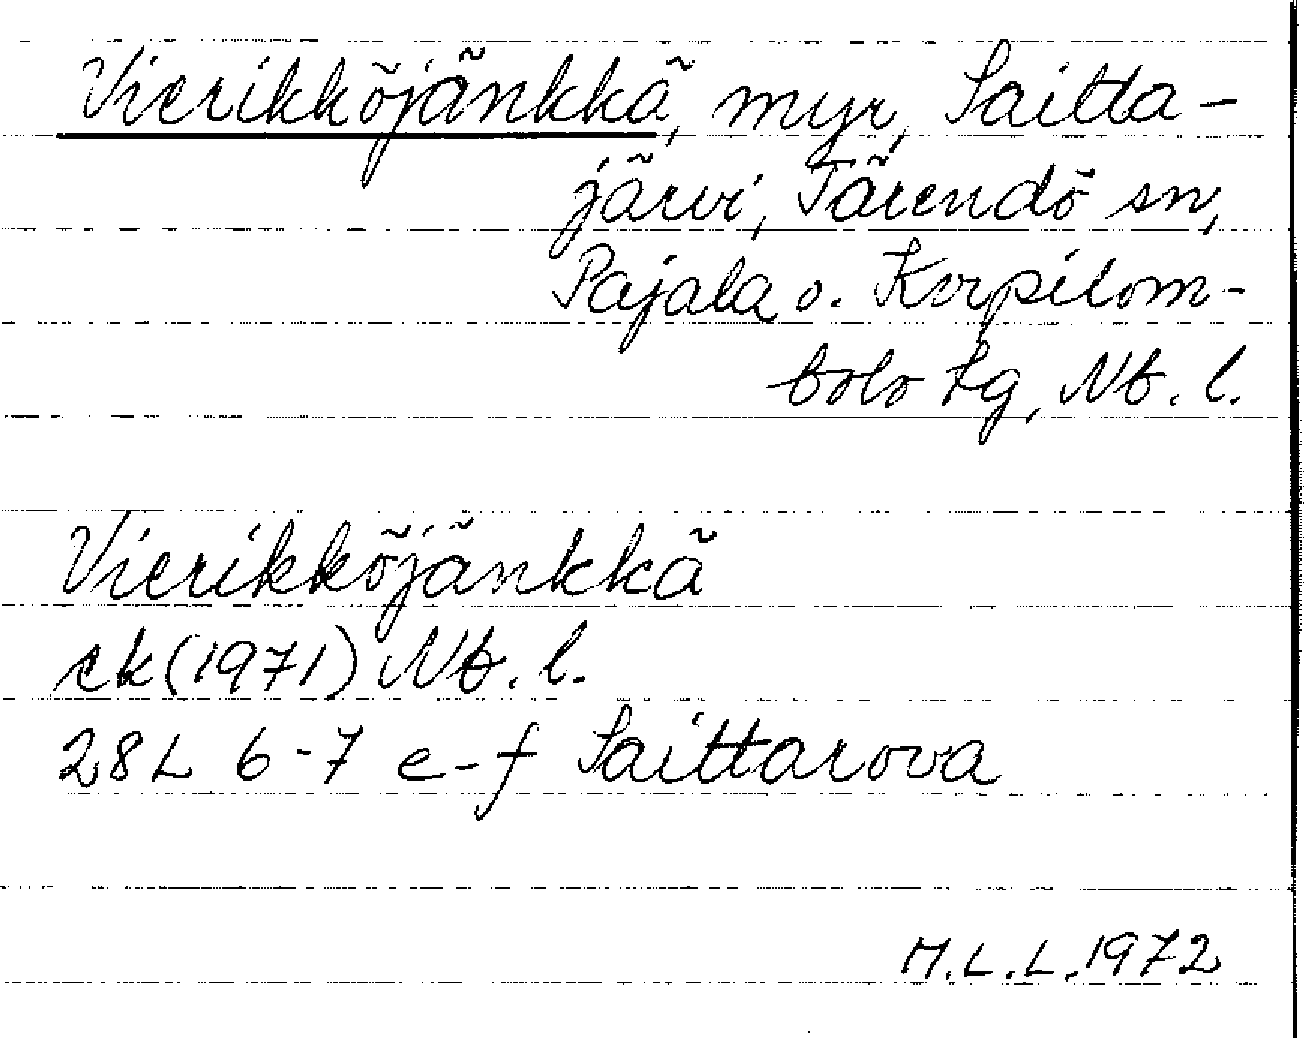 Vierikköjänkkä, myr, Saitta-
järvi, Tärendö sn,
Pajala o. Korpilom-
bolo tg, Nb. l.
Vierikköjänkkä
ek (1971) Nb. l.
28L 6-7 e-f Saittarova
M.L.L. 1972